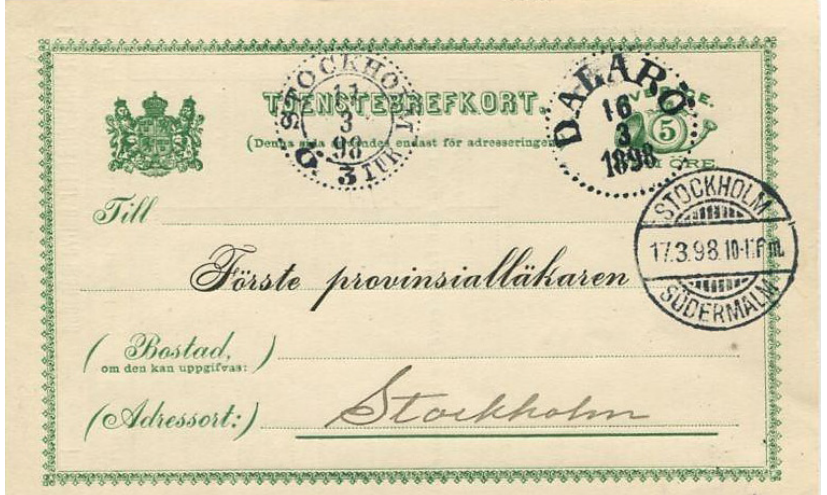 TJENSTEBREFKORT.
(Denna sida användes endast för adresseringen
SVERIGE.
5
FEM ÖRE.
STOCKHOLM
11
3
98
3 TUR
DALARÖ
16
3
1898
STOCKHOLM
17.3.98.10-11 F.m.
SÖDERMALM
Till
Förste provinsialläkaren
(Bostad,)
om den kan uppgifvas:
(Adressort:) Stockholm